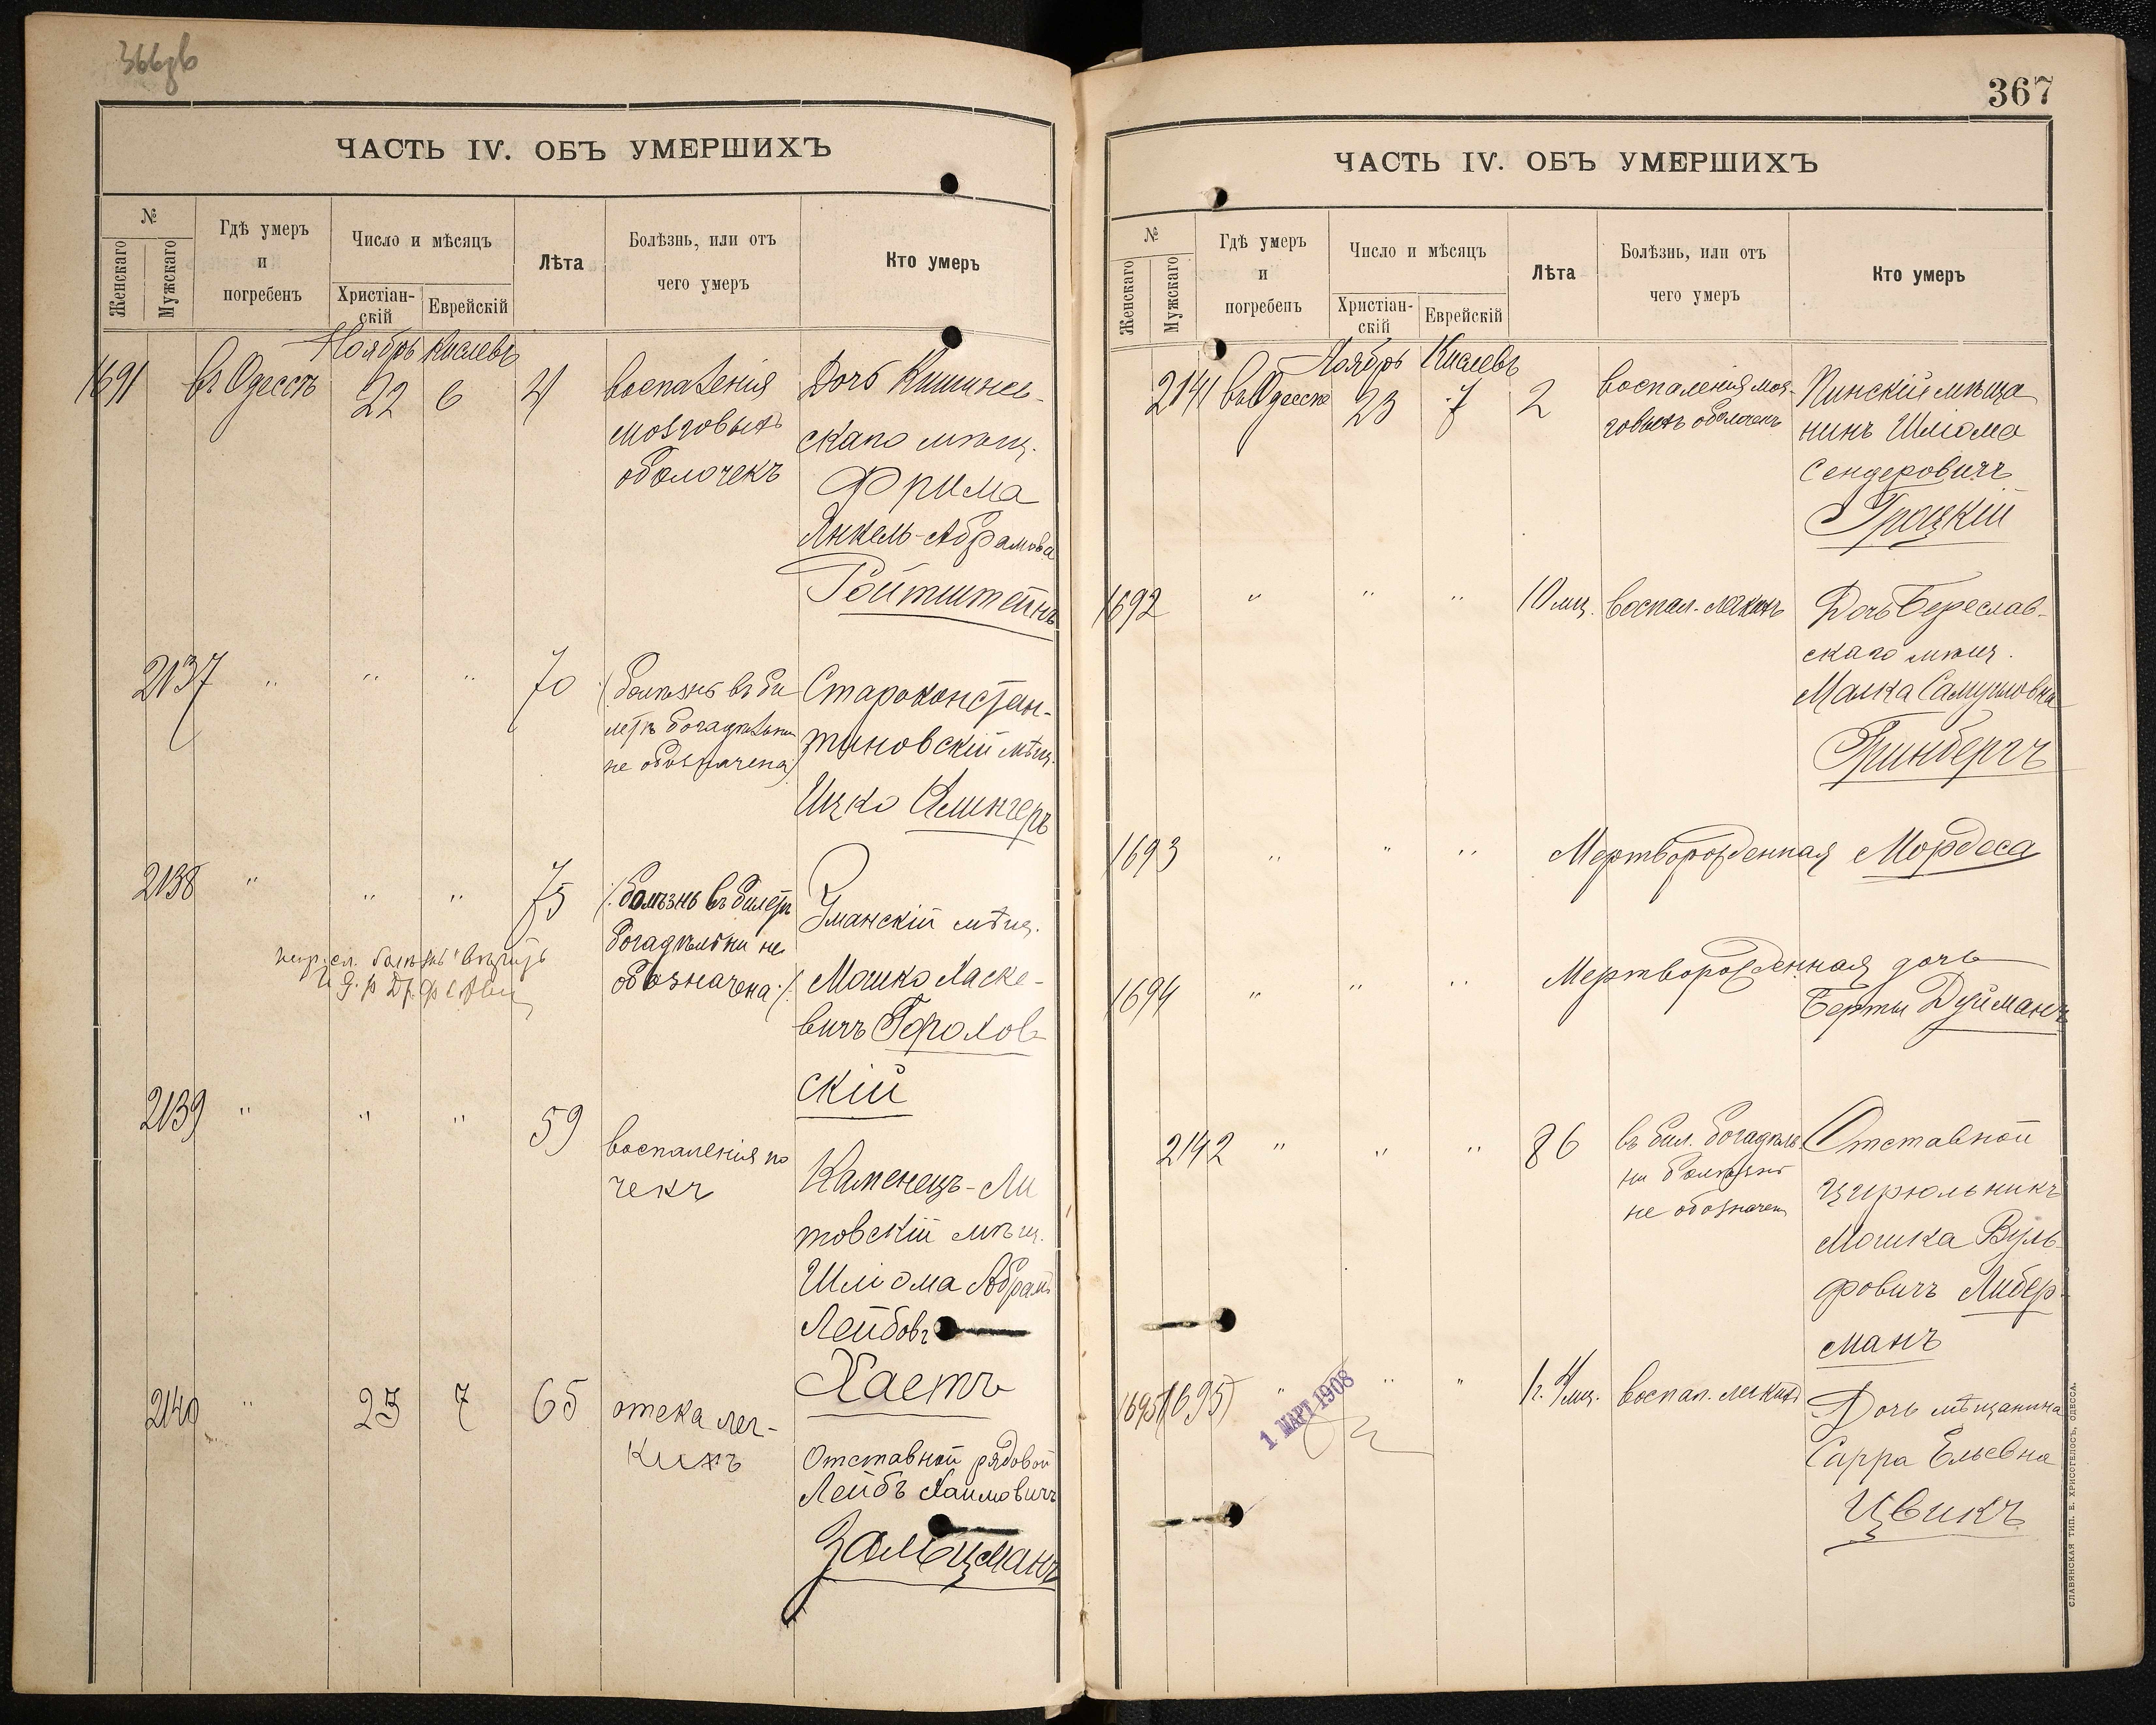 366
ЧАСТЬ IV. ОБЪ УМЕРШИХЪ
№
Женскаго
Мужскаго
Гдѣ умеръ
и
погребенъ
Число и мѣсяцъ
Христіан-
скій
Еврейскій
Лѣта
Болѣзнь, или отъ
чего умеръ
Кто умеръ
Ноябрь Кислевъ
1691 въ Одессѣ 22 6 4
воспаленія
мозговыхъ
оболочекъ
Дочь Кишинев-
скаго мѣщ.
Фрима
Янкель-Абрамова
Ройтштейнъ
2137 " " " 70
(болѣзнь въ би
летѣ богадѣльни
не обозначена)
Староконстан-
тиновскій мѣщ.
Ицко Клингеръ
2138 " " " 75
(:болѣзнь въ билетѣ
богадѣльни не
обозначена:)
Уманскій мѣщ.
Мошко Хаске-
вичъ Горохов
скій
2139 " " " 59
воспаленія по
чекъ
Каменецъ-Ли
товскій мѣщ.
Шліома Абрамъ
Лейбовъ
Хаетъ
2140 " 23 7 65
отека лег-
кихъ
Отставной рядовой
Лейбъ Хаимовичъ
Зальцманъ
367
ЧАСТЬ IV. ОБЪ УМЕРШИХЪ
№
Женскаго
Мужскаго
Гдѣ умеръ
и
погребенъ
Число и мѣсяцъ
Христіан-
скій
Еврейскій
Лѣта
Болѣзнь, или отъ
чего умеръ
Кто умеръ
Ноябрь Кислевъ
2141 въ Одессѣ 23 7 2
воспаленія моз-
говыхъ оболочекъ
Пинскій мѣща
нинъ Шліома
Сендеровичъ
Троцкій
1692 " " " 10 мц. воспал. легкихъ
Дочь Береслав-
скаго мѣщ.
Малка Самуиловна
Гринбергъ
1693 " " " Мертворожденная Мордеса
1694 " " " Мертворожденная дочь
Берты Дуйманъ
2142 " " " 86
въ бил. богадѣль
ни болѣзнь
не обозначен
Отставной
цирюльникъ
Мошка Вуль
фовичъ Либер-
манъ
1695 (1695) " " " 1 г. 4 мц. воспал. легкихъ
1 МАРТ 1908
Дочь мѣщанина
Сарра Ельевна
Цвикъ
СЛАВЯНСКАЯ ТИП. Е. ХРИСОГЕЛОСЪ, ОДЕССА.